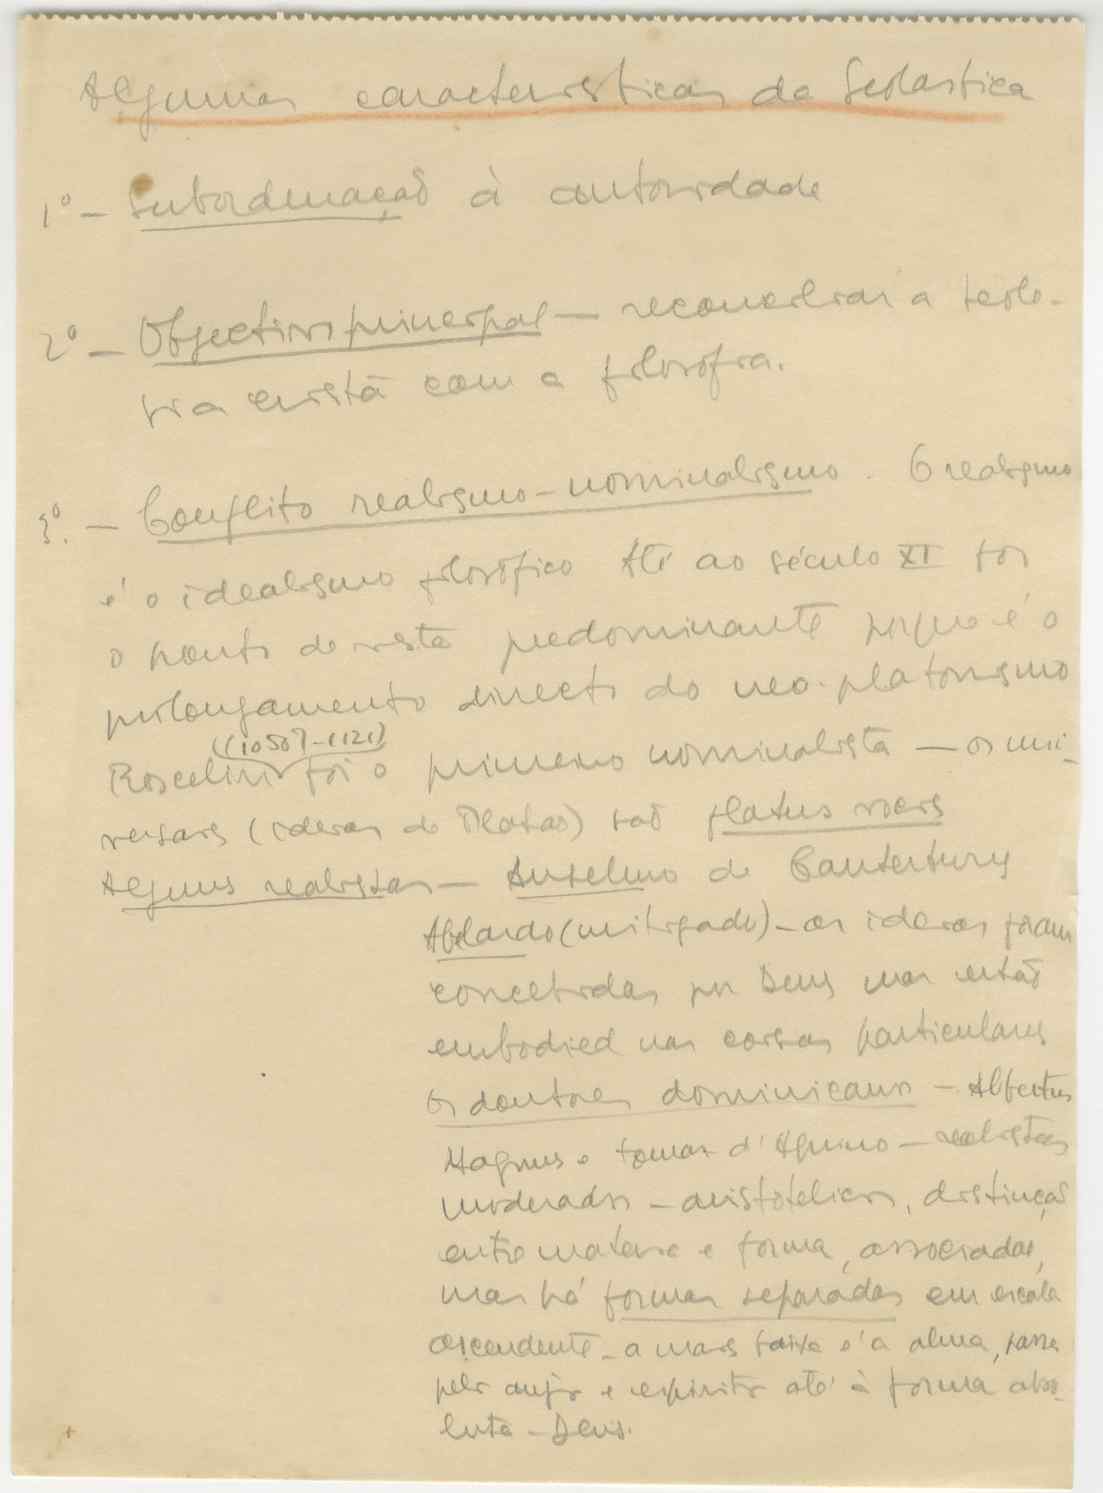 Algumas características da Scolastica
1º - Subordinação à autoridade
2º - Objectivo principal - reconciliar a teolo-
gia cristã com a filosofia.
3º. - Conflito realismo-nominalismo. O realismo
é o idealismo filosófico Até ao século XI foi
o ponto de vista predominante porque é o
prolongamento directo do neo-platonismo
(1050?-1121)
Roscelin foi o primeiro nominalista - os uni-
versais (ideias de Platão) são flatus vocis
Alguns realistas - Anselmo de Canterbury
Abelardo (mitigado) - as ideias foram
concebidas por Deus mas estão
embodied nas coisas particulares
Os doutores dominicanos - Albertus
Magnus e Tomas d'Aquino - realistas
moderados - aristotelicos, distinção
entre materia e forma, associadas,
mas há formas separadas em escala
ascendente - a mais baixa é a alma, passa
pelos anjos e espiritos até à forma abso-
luta - Deus.